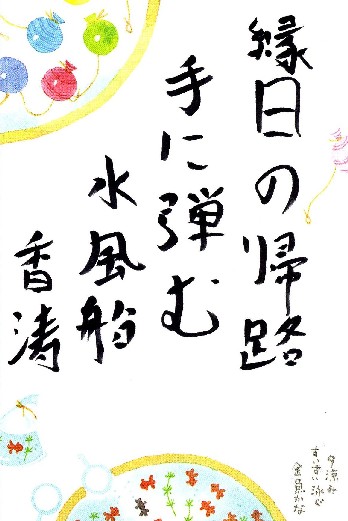 縁日の帰路
手に弾む
水風船
香涛
夕涼み
すいすい泳ぐ
金魚かな